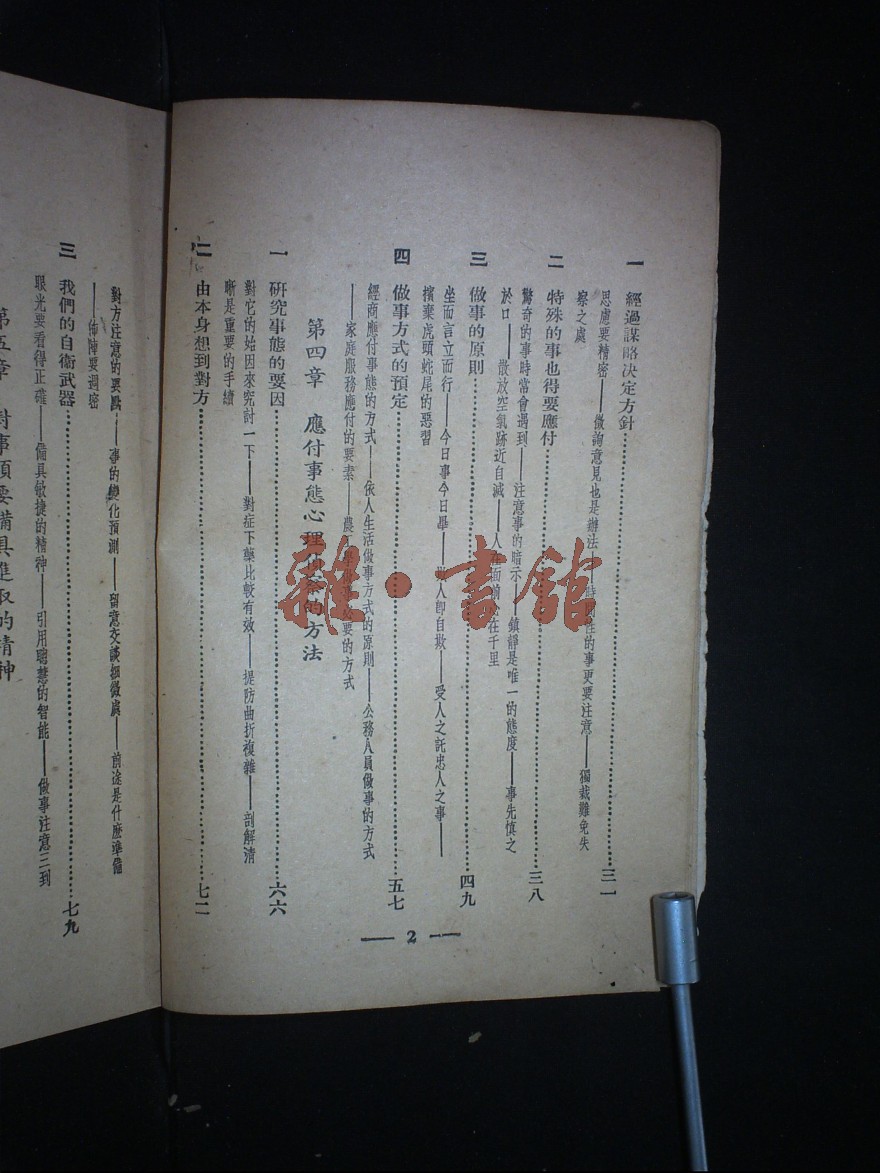 一 經過謀略决定方針 三一
思慮要精密——徵詢意見也是辦法——特 性的事更要注意——獨裁難免失
察之處
二 特殊的事也得要應付 三八
驚奇的事時常會遇到——注意事的暗示——鎮靜是唯一的態度——事先慎之
於口——散放空氣跡近自滅——人在面前 在千里
三 做事的原則 四九
坐而言立而行——今日事今日畢—— 人卽自欺——受人之託忠人之事——
擯棄虎頭蛇尾的惡習
四 做事方式的預定 五七
經商應付事態的方式——依人生活做事方式的原則——公務人員做事的方式
——家庭服務應付的要素——農 要的方式
第四章 應付事態心理 的方法
一 研究事態的要因 六六
對它的始因來究討一下——對症下藥比較有效——提防曲折複雜——剖解清
晰是重要的手續
二 由本身想到對方 七二
對方注意的要點——事的變化預測——留意交談細微處——前途是什麽準備
——佈陣要週密
三 我們的自衛武器 七九
眼光要看得正確——備具敏捷的精神——引用聰慧的智能——做事注意三到
第五章 對事須要備具進取的精神
— 2 —
雜·書館